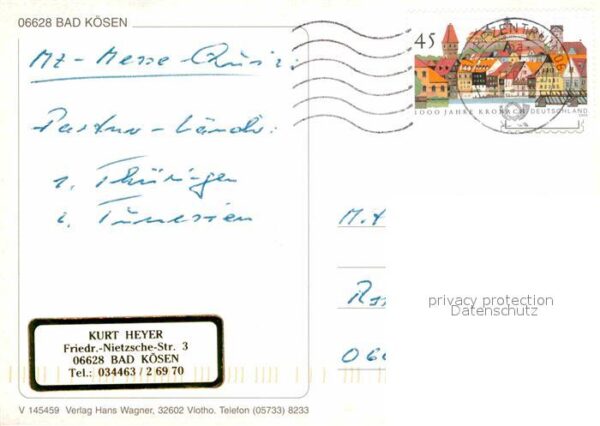 06628 BAD KÖSEN
MZ-Messe-Quiz:
Partner-Länder:
1. Thüringen
2. Tunesien
45
1000 JAHRE KRONACH DEUTSCHLAND
BRIEFZENTRUM 06
M.
06
privacy protection
Datenschutz
KURT HEYER
Friedr.-Nietzsche-Str. 3
06628 BAD KÖSEN
Tel.: 034463 / 2 69 70
V 145459 Verlag Hans Wagner, 32602 Vlotho. Telefon (05733) 8233